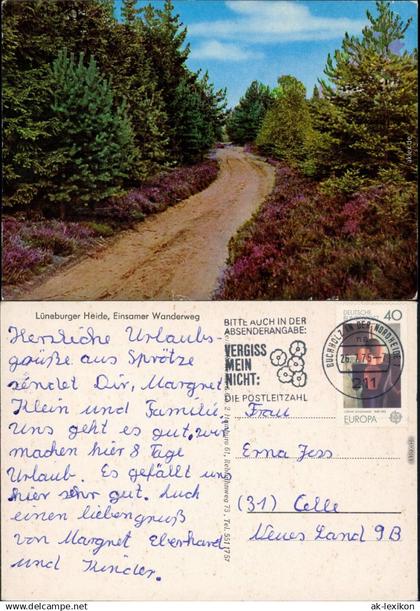 Lüneburger Heide, Einsamer Wanderweg
Herzliche Urlaubs-
grüße aus Sprötze
sendet Dir, Margret
Klein und Familie.
Uns geht es gut, wir
machen hier 8 Tage
Urlaub. Es gefällt uns
hier sehr gut. Auch
einen lieben gruß
von Margret Eberhard
und Kinder.
BITTE AUCH IN DER
ABSENDERANGABE:
VERGISS
MEIN
NICHT:
DIE POSTLEITZAHL
DEUTSCHE
40
BUCHHOLZ IN DER NORDHEIDE
26.7.75-7
211
EUROPA CEPT
Frau
Erna Jess
(31) Celle
Neues Land 9B
ak-lexikon.com